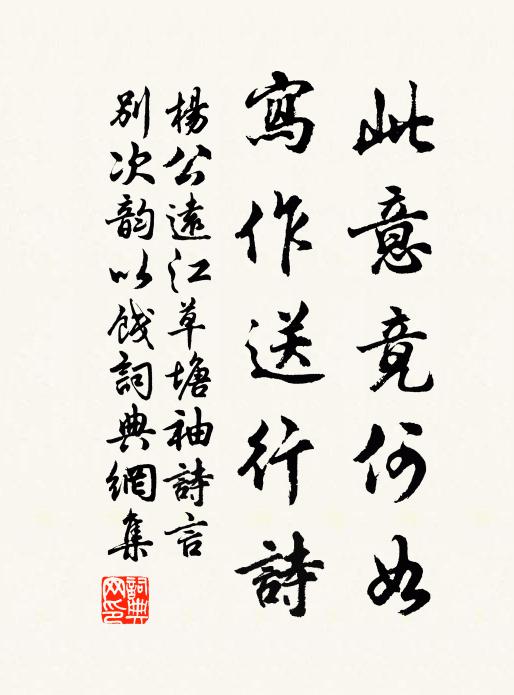 此意竟何如
寫作送行詩
楊公遠江草塘袖詩言
別次韵以餞詞典網集
詞典网印